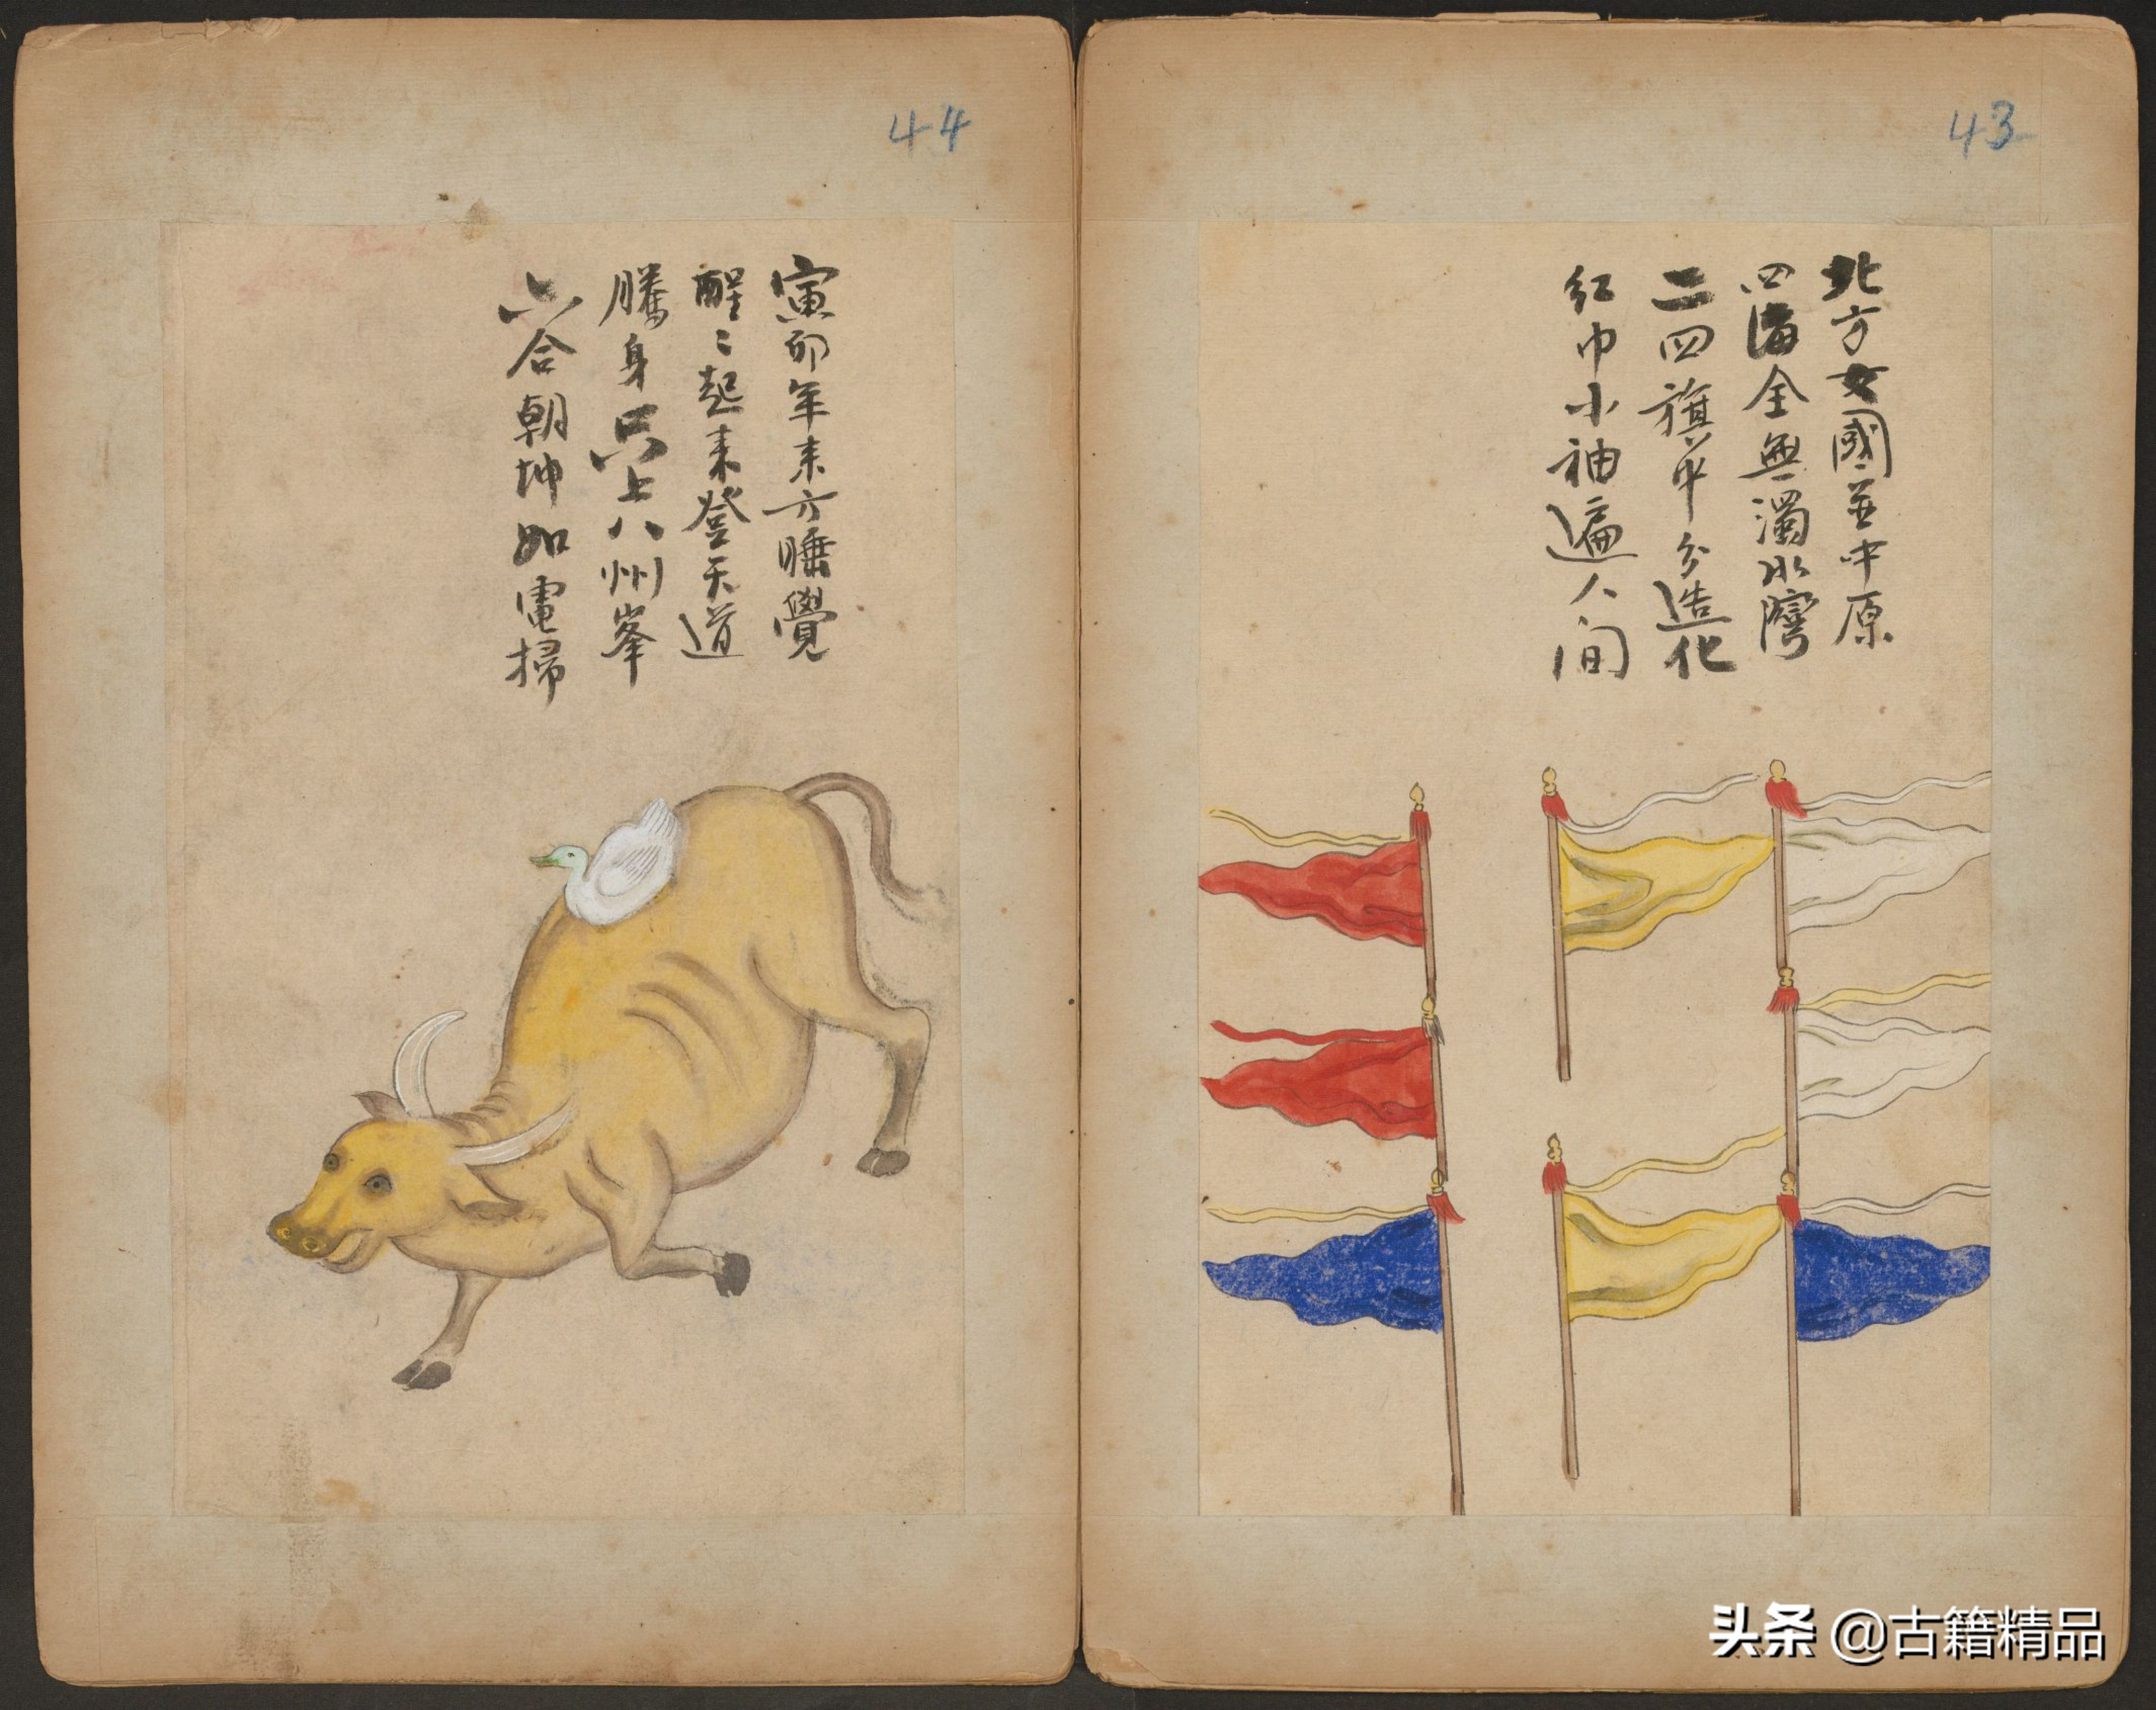 43
北方女國並中原
四海全無濁水灣
二四旗中分造化
紅巾小袖遍人间
44
寅卯年来方睡覺
醒〻起来登天道
騰身只上八州峯
六合朝坤如電掃
头条 @古籍精品